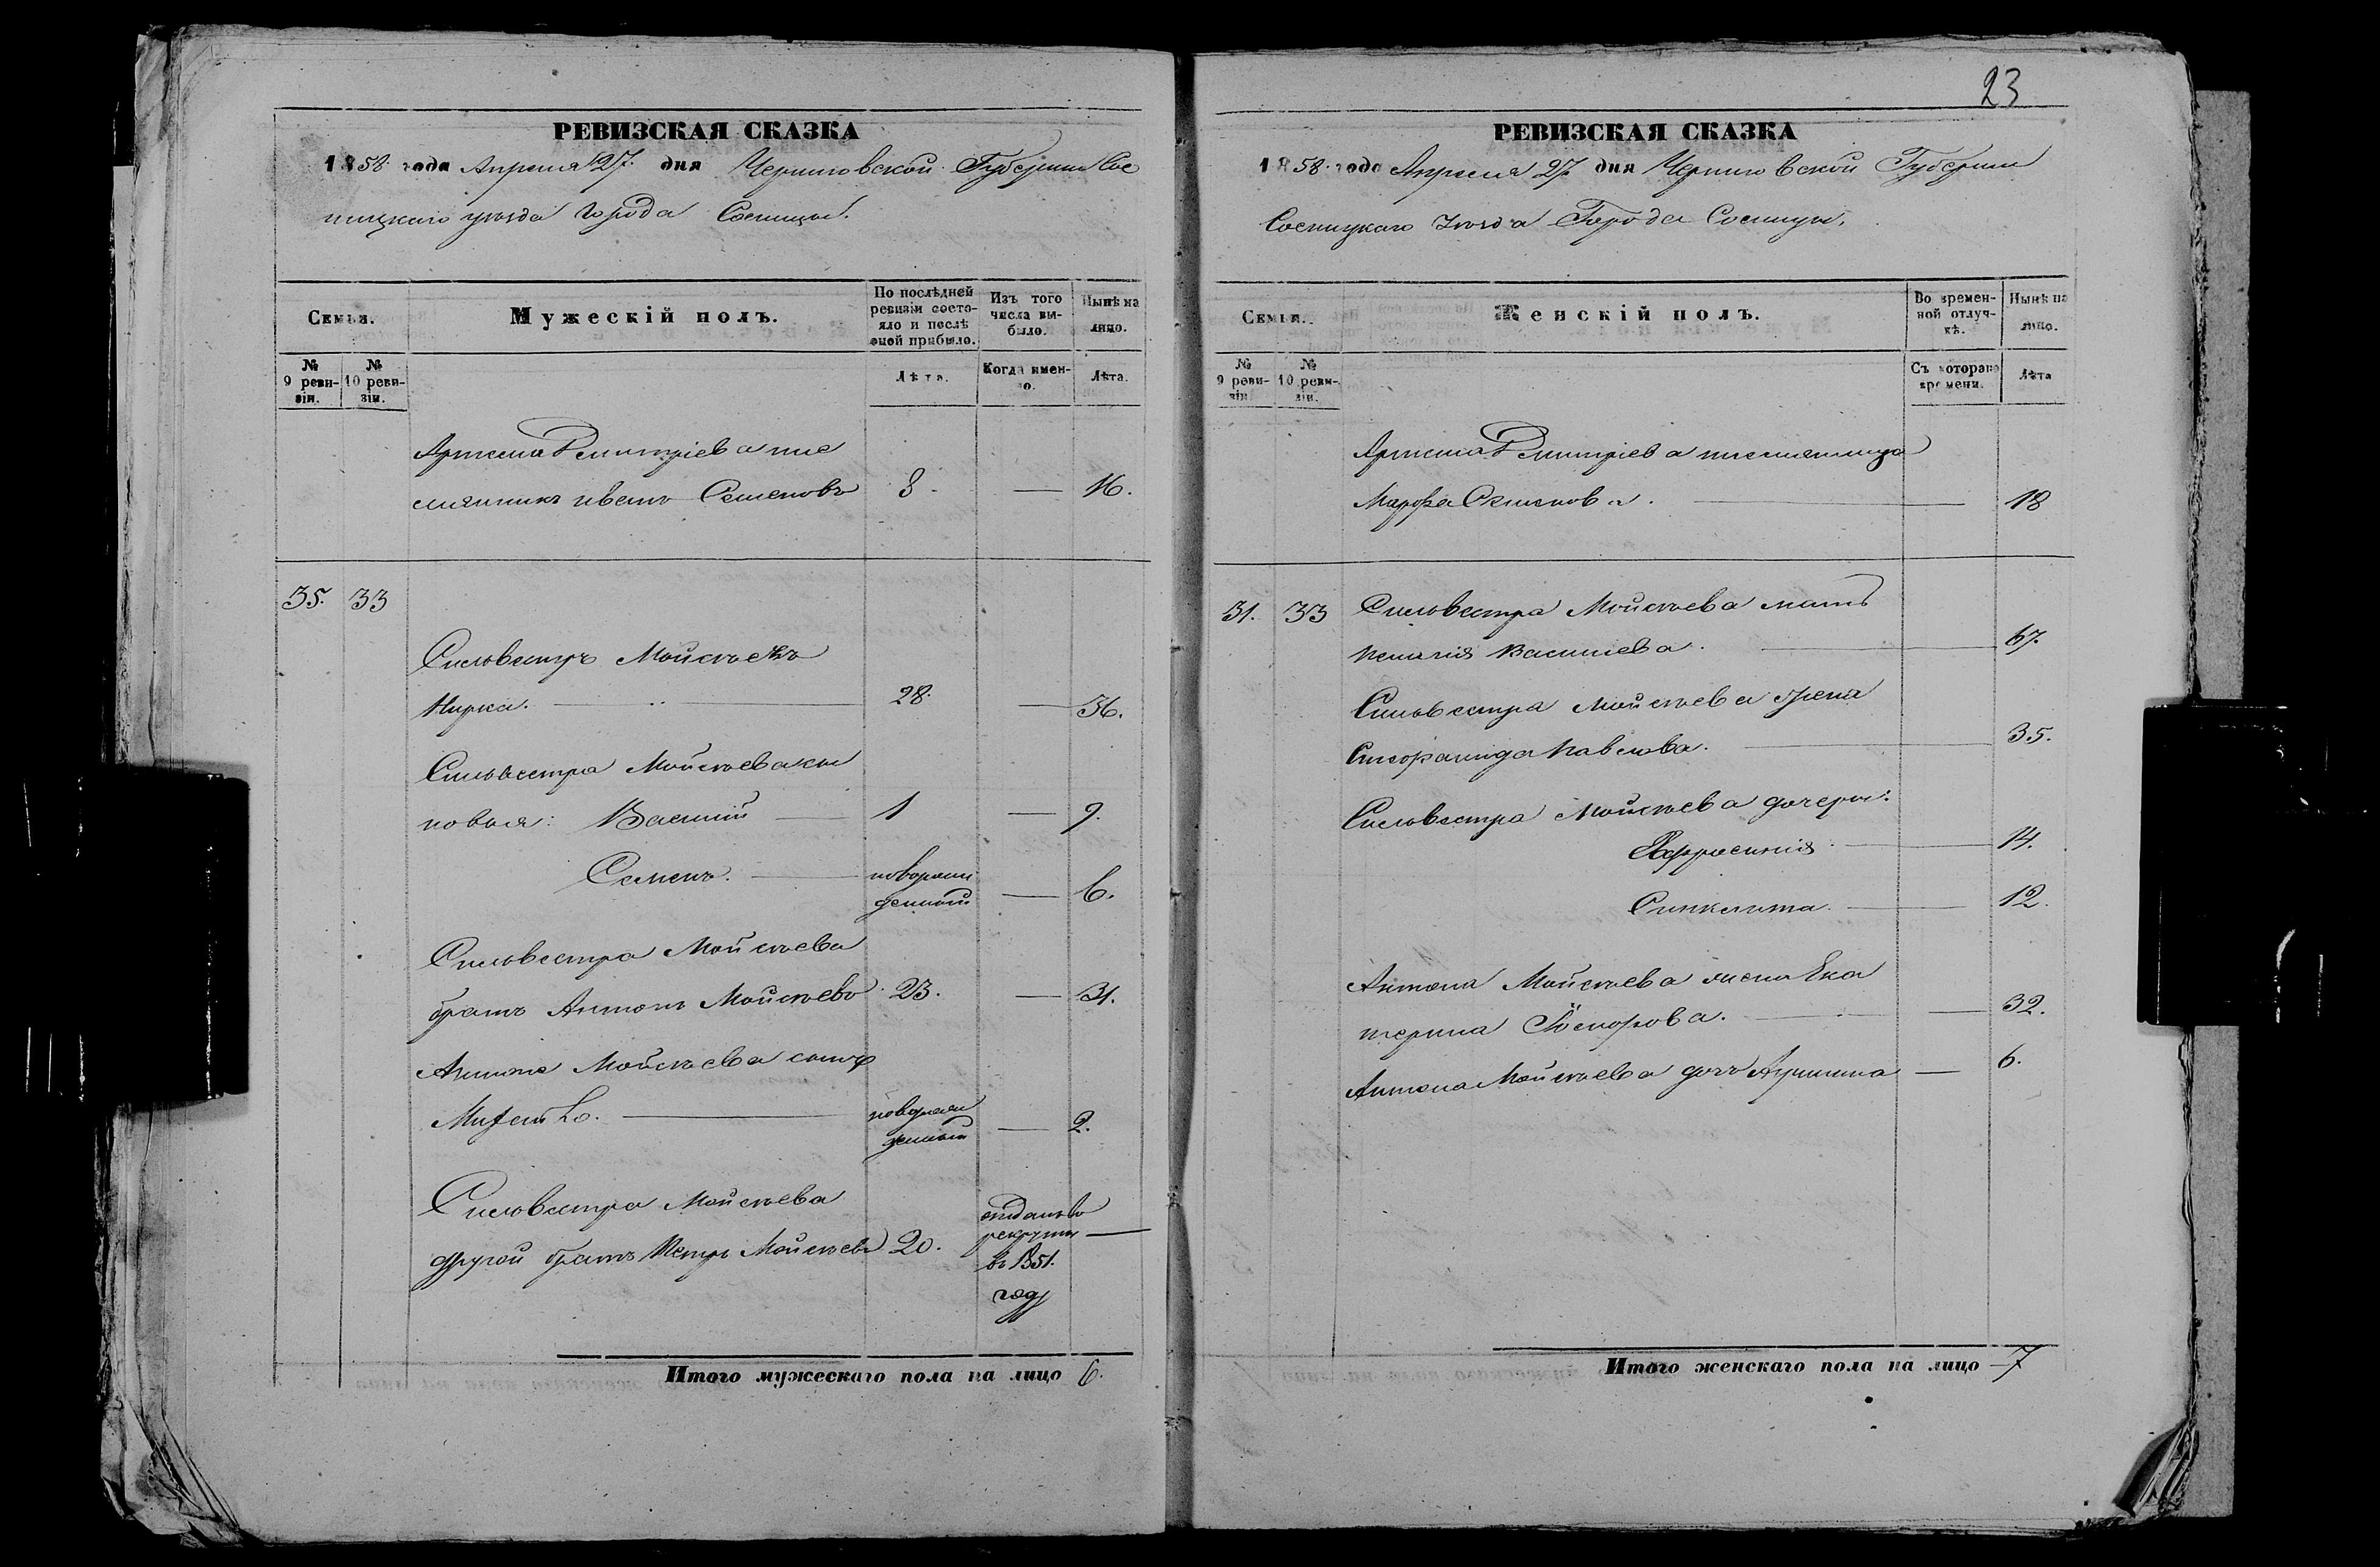 23
РЕВИЗСКАЯ СКАЗКА
1858 года Апреля 27. дня Черниговской Губерніи Сос
ницкаго уезда города Сосницы.
Семья.
Мужескій полъ.
По послѣдней ревизіи состояло и послѣ оной прибыло.
Изъ того числа выбыло.
Нынѣ на лицо.
№ 9 ревизіи.
№ 10 ревизіи.
Лѣта.
Когда именно.
Лѣта.
Артема Дмитріева пле
мянникъ иванъ Семеновъ 8. — 16.
35. 33
Сильвестръ Мойсѣевъ
Нирка. — 28. — 36.
Сильвестра Мойсѣева сы
новья: Василій — 1 — 9.
Семенъ. — новорож
денный — 6.
Сильвестра Мойсѣева
братъ Антонъ Мойсѣевъ 23. — 31.
Антона Мойсѣева сынъ
— новорож
денный — 2.
Сильвестра Мойсѣева
другой братъ Петръ Мойсѣевъ 20. отданъ во
рекруты —
въ 1851.
году
Итого мужескаго пола на лицо 6.
РЕВИЗСКАЯ СКАЗКА
1858. года Апреля 27 дня Черниговской Губерніи
Сосницкаго уезда Города Сосницы.
Семья.
Женскій полъ.
Во временной отлучкѣ.
Нынѣ на лицо.
№ 9 ревизіи.
№ 10 ревизіи.
Съ котораго времени.
Лѣта
Артема Дмитріева племянница
Марфа Семенова. — 18
31. 33 Сильвестра Мойсѣева мать
Пелагія Василиева. — 67.
Сильвестра Мойсѣева жена
Павлова. — 35.
Сильвестра Мойсѣева дочери:
Ефросинія — 14.
Синклита. — 12.
Антона Мойсѣева жена Ека
терина — 32.
Антона Мойсѣева дочь — 6.
Итого женскаго пола на лицо — 7